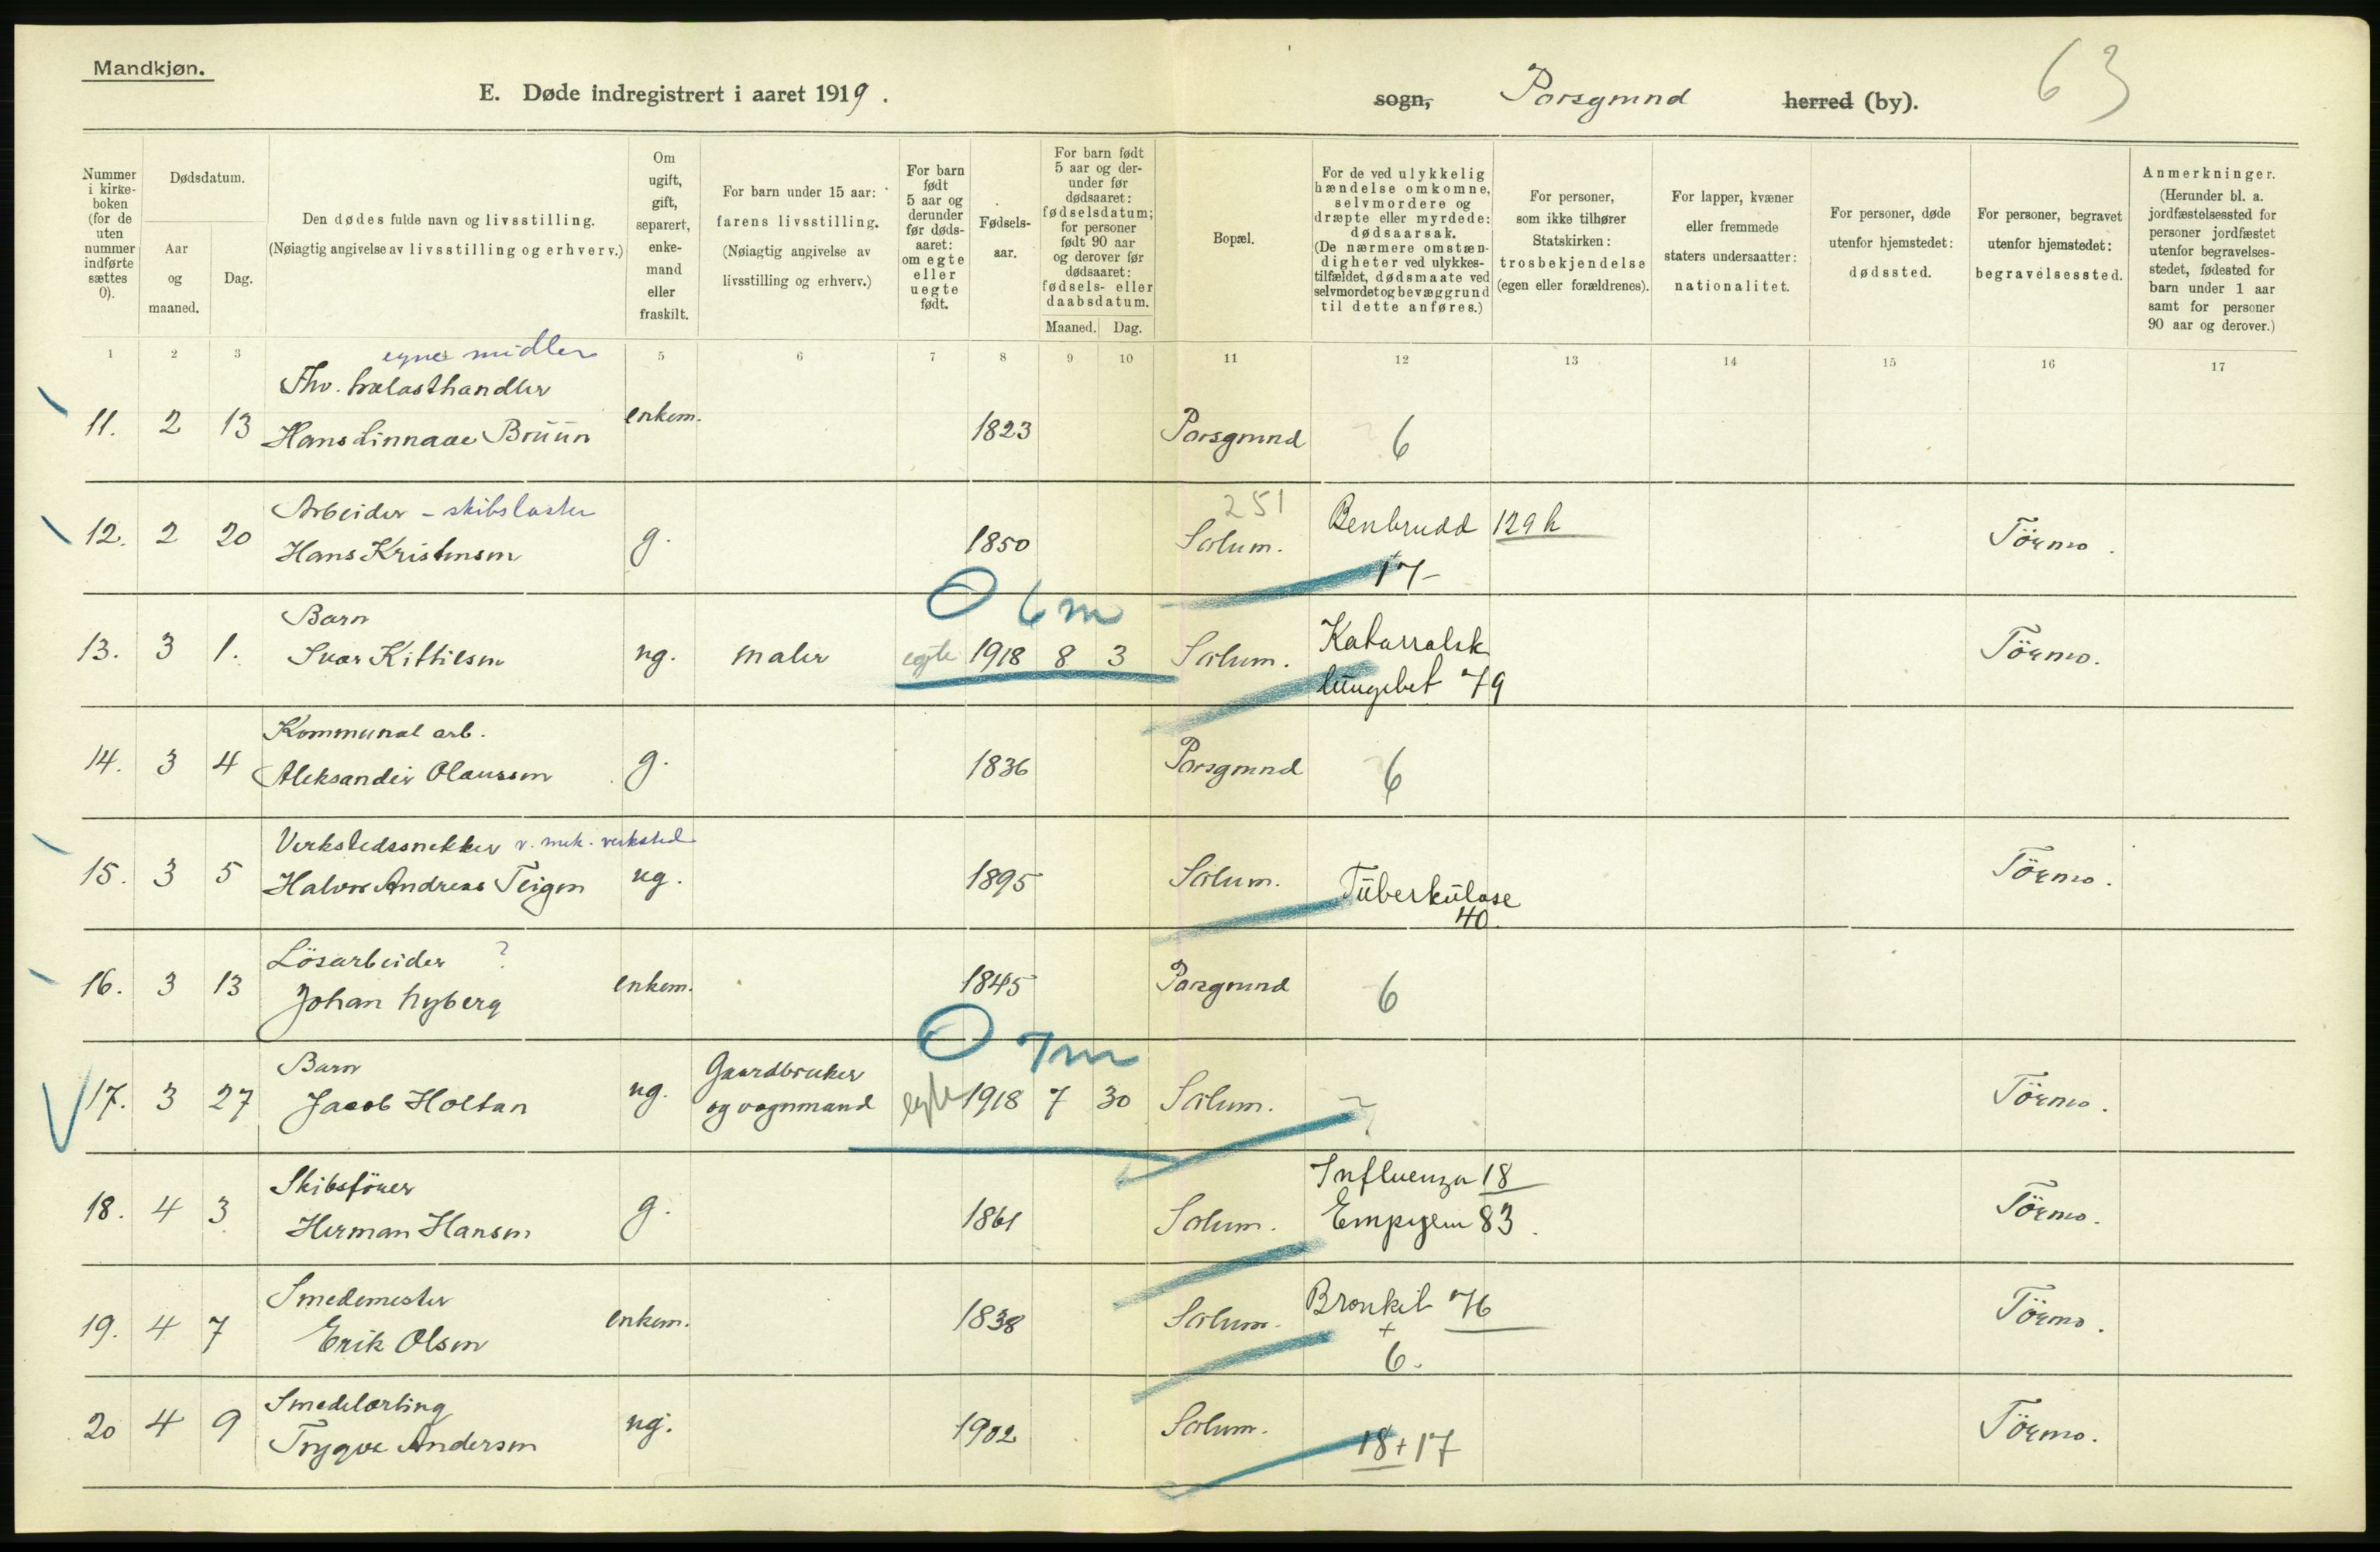 Mandkjøn.
E. Døde indregistrert i aaret 1919. sogn, Porsgrund herred (by). 63
Nummer i kirke-boken (for de uten nummer indførte sættes 0).
Dødsdatum.
Aar og maaned.
Dag.
Den dødes fulde navn og livsstilling.
(Nøiagtig angivelse av livsstilling og erhverv.)
Om ugift, gift, separert, enke-mand eller fraskilt.
For barn under 15 aar: farens livsstilling. (Nøiagtig angivelse av livsstilling og erhverv.)
For barn født 5 aar og derunder før døds-aaret: om egte eller uegte født.
Fødsels-aar.
For barn født 5 aar og der-under før dødsaaret: fødselsdatum; for personer født 90 aar og derover før dødsaaret: fødsels- eller daabsdatum.
Maaned. Dag.
Bopæl.
For de ved ulykkelig hændelse omkomne, selvmordere og dræpte eller myrdede: dødsaarsak. (De nærmere omstæn-digheter ved ulykkes-tilfældet, dødsmaate ved selvmordet og bevæggrund til dette anføres.)
For personer, som ikke tilhører Statskirken: trosbekjendelse (egen eller forældrenes).
For lapper, kvæner eller fremmede staters undersaatter: nationalitet.
For personer, døde utenfor hjemstedet: dødssted.
For personer, begravet utenfor hjemstedet: begravelsessted.
Anmerkninger. (Herunder bl. a. jordfæstelsessted for personer jordfæstet utenfor begravelses-stedet, fødested for barn under 1 aar samt for personer 90 aar og derover.)
1 2 3 5 6 7 8 9 10 11 12 13 14 15 16 17
egne midler
Fhv. trælasthandler
11. 2 13 Hans Linnaae Bruun enkem. 1823 Porsgrund 6
Arbeider - skibslaster 251 Benbrudd 129 h
12. 2 20 Hans Kristensen g. 1850 Solum. + 17 - Törmo.
O 6 m
Barn Katarralsk
13. 3 1. Ivar Kittilsen ug. maler egte 1918 8 3 Solum. lungebet 79 Törmo.
Kommunal arb.
14. 3 4 Aleksander Olaussen g. 1836 Porsgrund 6
Verkstedssnekker v. mek. verksted
15. 3 5 Halvor Andreas Teigen ug. 1895 Solum. Tuberkulose 40. Törmo.
Lösarbeider ?
16. 3 13 Johan Nyberg enkem. 1845 Porsgrund 6
O 7 m
Barn Gaardbruker
17. 3 27 Jacob Holtan ug. og vognmand egte 1918 7 30 Solum. ? Törmo.
Skibsförer Influenza 18
18. 4 3 Herman Hansen g. 1861 Solum. Empyem 83. Törmo.
Smedemester Bronkit 76
19. 4 7 Erik Olsen enkem. 1838 Solum. + 6. Törmo.
Smedelærling
20 4 9 Trygve Andersen ug. 1902 Solum. 18 + 17 Törmo.